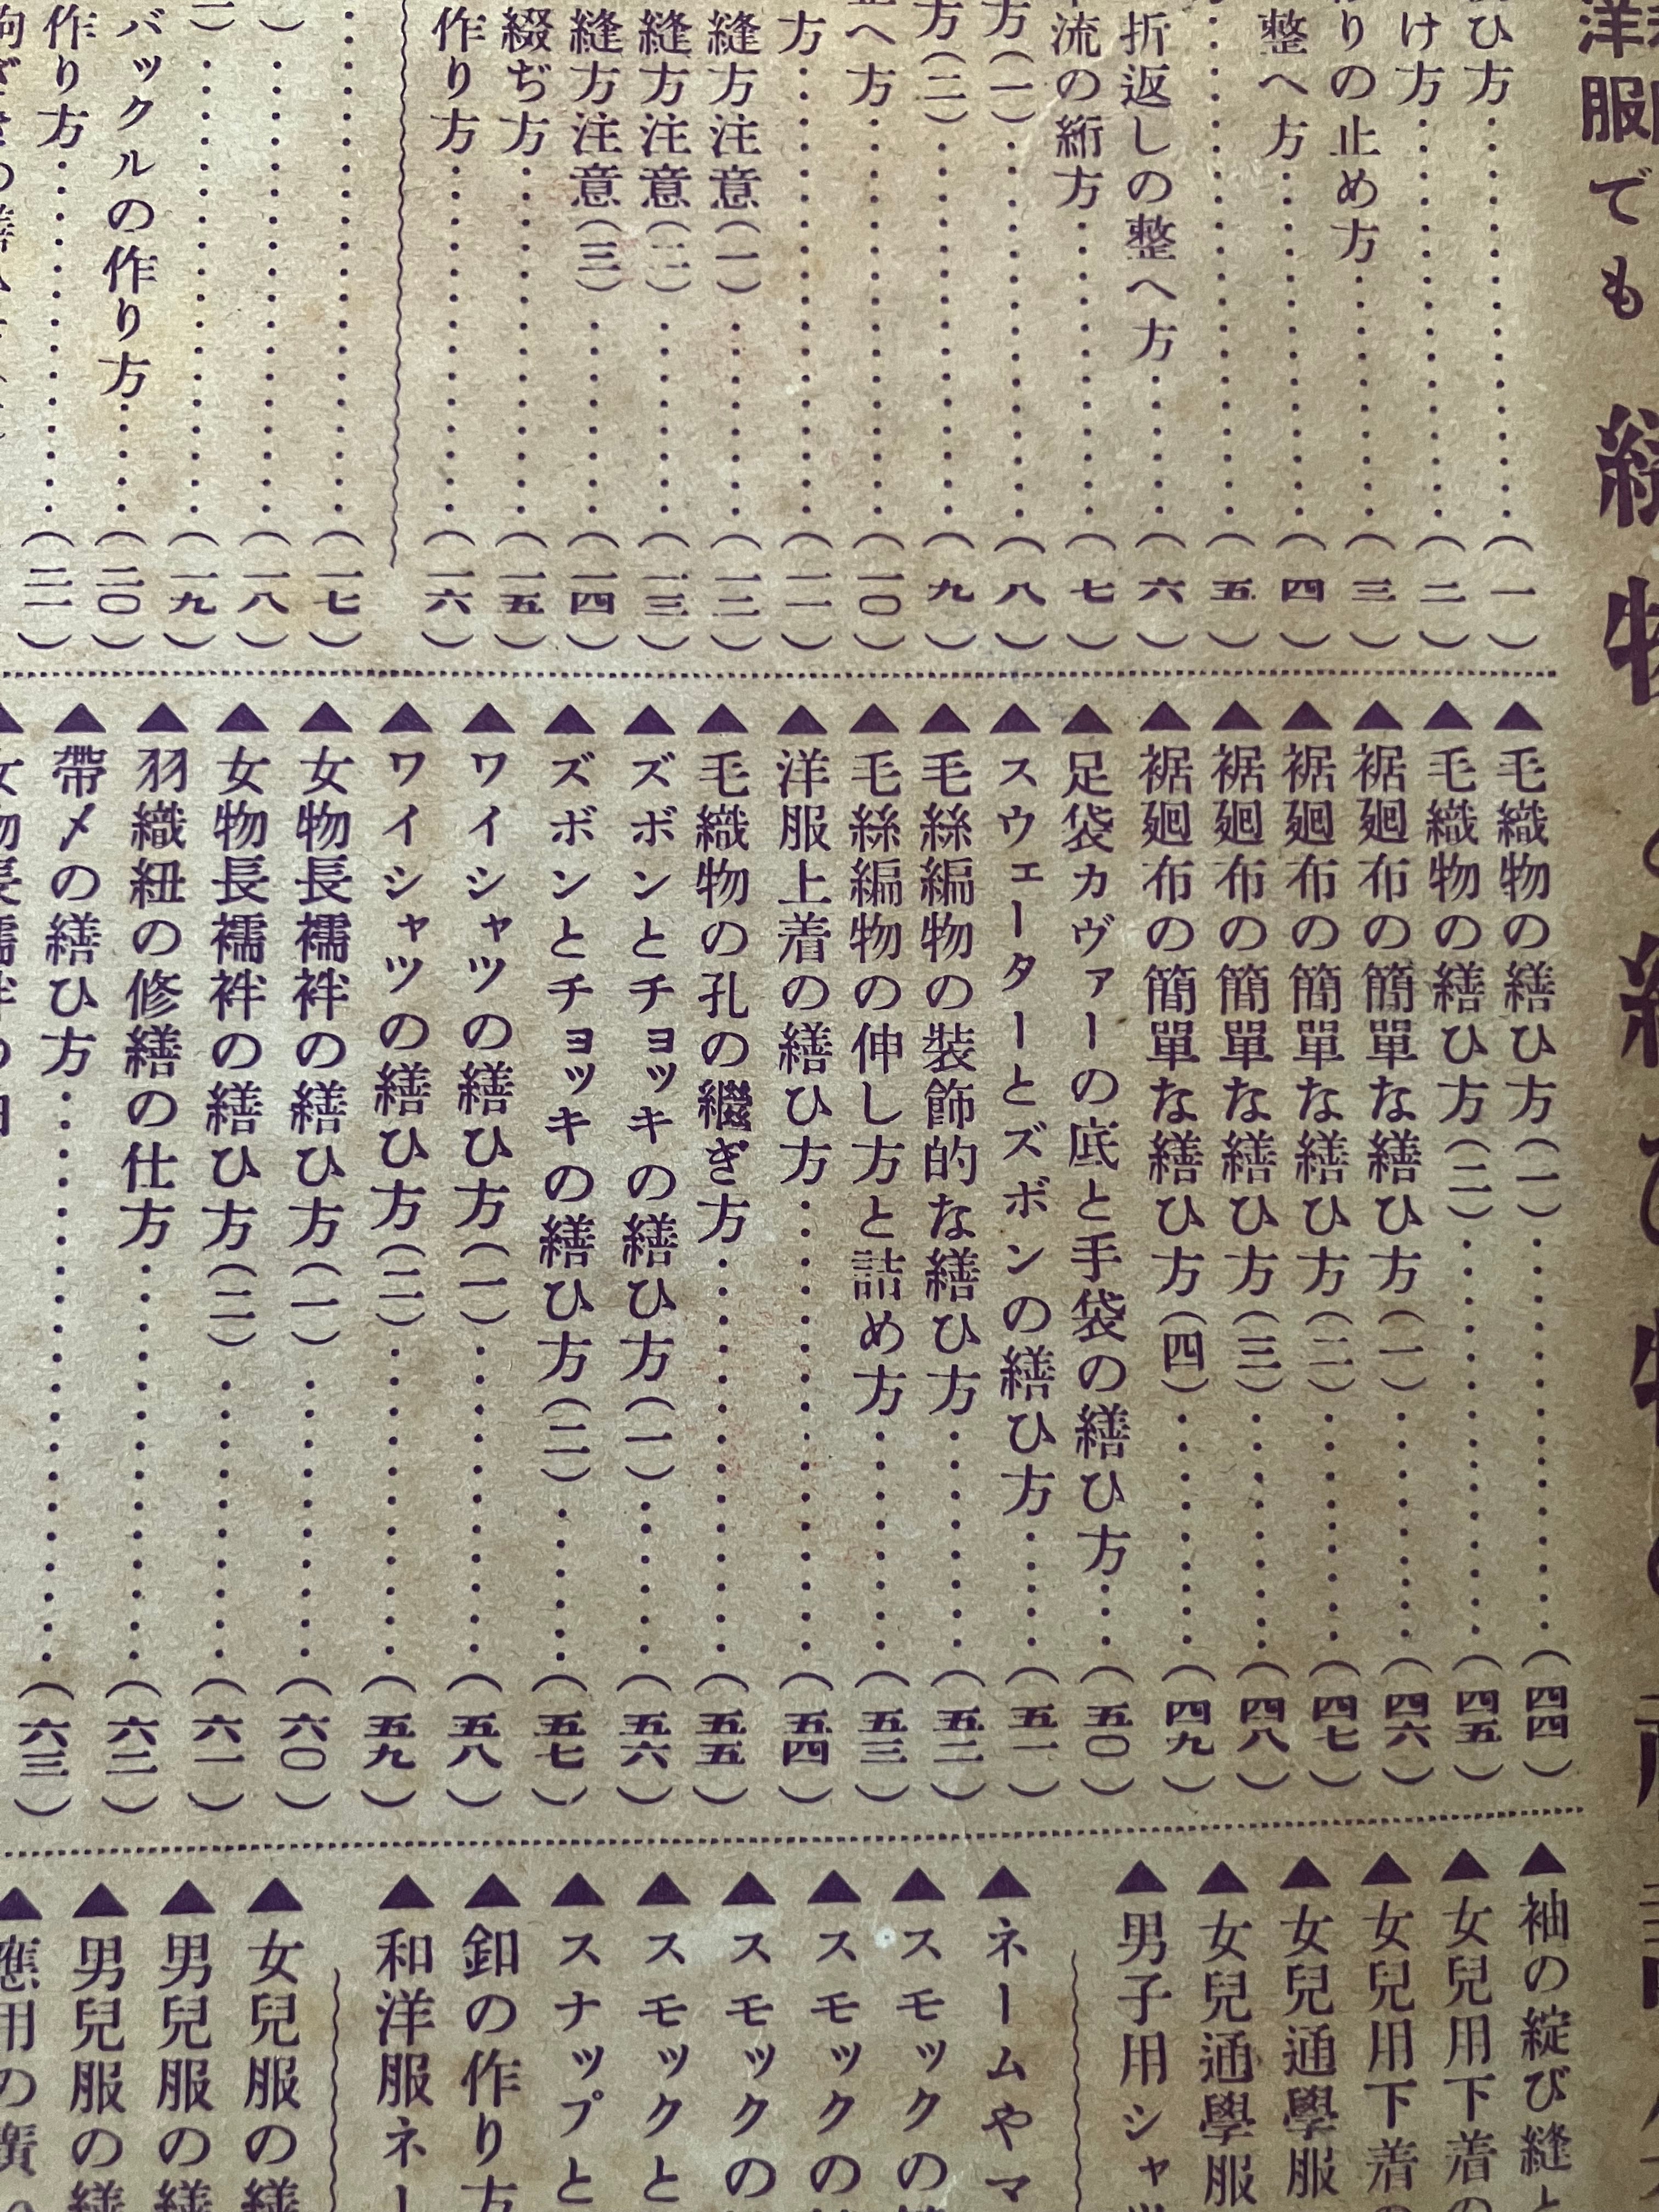 洋服でも
縫物
ひ方……(一)
け方……(二)
りの止め方……(三)
整へ方……(四)
……(五)
折返しの整へ方……(六)
流の絎方……(七)
方(一)……(八)
方(二)……(九)
へ方……(一〇)
方……(一一)
縫方注意(一)……(一二)
縫方注意(二)……(一三)
縫方注意(三)……(一四)
綴ぢ方……(一五)
作り方……(一六)
……(一七)
……(一八)
……(一九)
バックルの作り方……(二〇)
作り方……(二一)
▲毛織物の繕ひ方(一)……(四四)
▲毛織物の繕ひ方(二)……(四五)
▲裾廻布の簡單な繕ひ方(一)……(四六)
▲裾廻布の簡單な繕ひ方(二)……(四七)
▲裾廻布の簡單な繕ひ方(三)……(四八)
▲裾廻布の簡單な繕ひ方(四)……(四九)
▲足袋カヴァーの底と手袋の繕ひ方……(五〇)
▲スウェーターとズボンの繕ひ方……(五一)
▲毛絲編物の裝飾的な繕ひ方……(五二)
▲毛絲編物の伸し方と詰め方……(五三)
▲洋服上着の繕ひ方……(五四)
▲毛織物の孔の繼ぎ方……(五五)
▲ズボンとチョッキの繕ひ方(一)……(五六)
▲ズボンとチョッキの繕ひ方(二)……(五七)
▲ワイシャツの繕ひ方(一)……(五八)
▲ワイシャツの繕ひ方(二)……(五九)
▲女物長襦袢の繕ひ方(一)……(六〇)
▲女物長襦袢の繕ひ方(二)……(六一)
▲羽織紐の修繕の仕方……(六二)
▲帶〆の繕ひ方……(六三)
▲袖の綻び縫と
▲女兒用下着の
▲女兒用下着の
▲女兒通學服
▲女兒通學服
▲男子用シャツ
▲ネームやマ
▲スモックの
▲スモックの
▲スモックの
▲スモックと
▲スナップと
▲釦の作り方
▲和洋服ネー
▲女兒服の繕
▲男兒服の繕
▲男兒服の繕
▲應用の